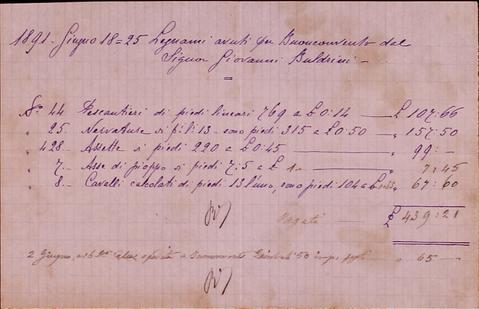 1891. Giugno 18=25 Legnami avuti per Buonconvento dal
Signor Giovanni Buldrini -
=
No. 44 Pescantieri di piedi lineari 769 a £0:14 — £ 107:66
" 25. Nervature si p.i 13 - sono piedi 315 a £0:50 - " 157:50
" 428 Assette si piedi 220 a £0:45 — " 99: -
" 7. Asse di pioppo si piedi 7:5 a £ 1 - " 7:45
" 8. Cavalli calcolati di piedi 13 l'uno, sono piedi 104 a £ " 67:60
Pagati — £ 439:21
2 Giugno, a Buonconvento 50 " 65 -